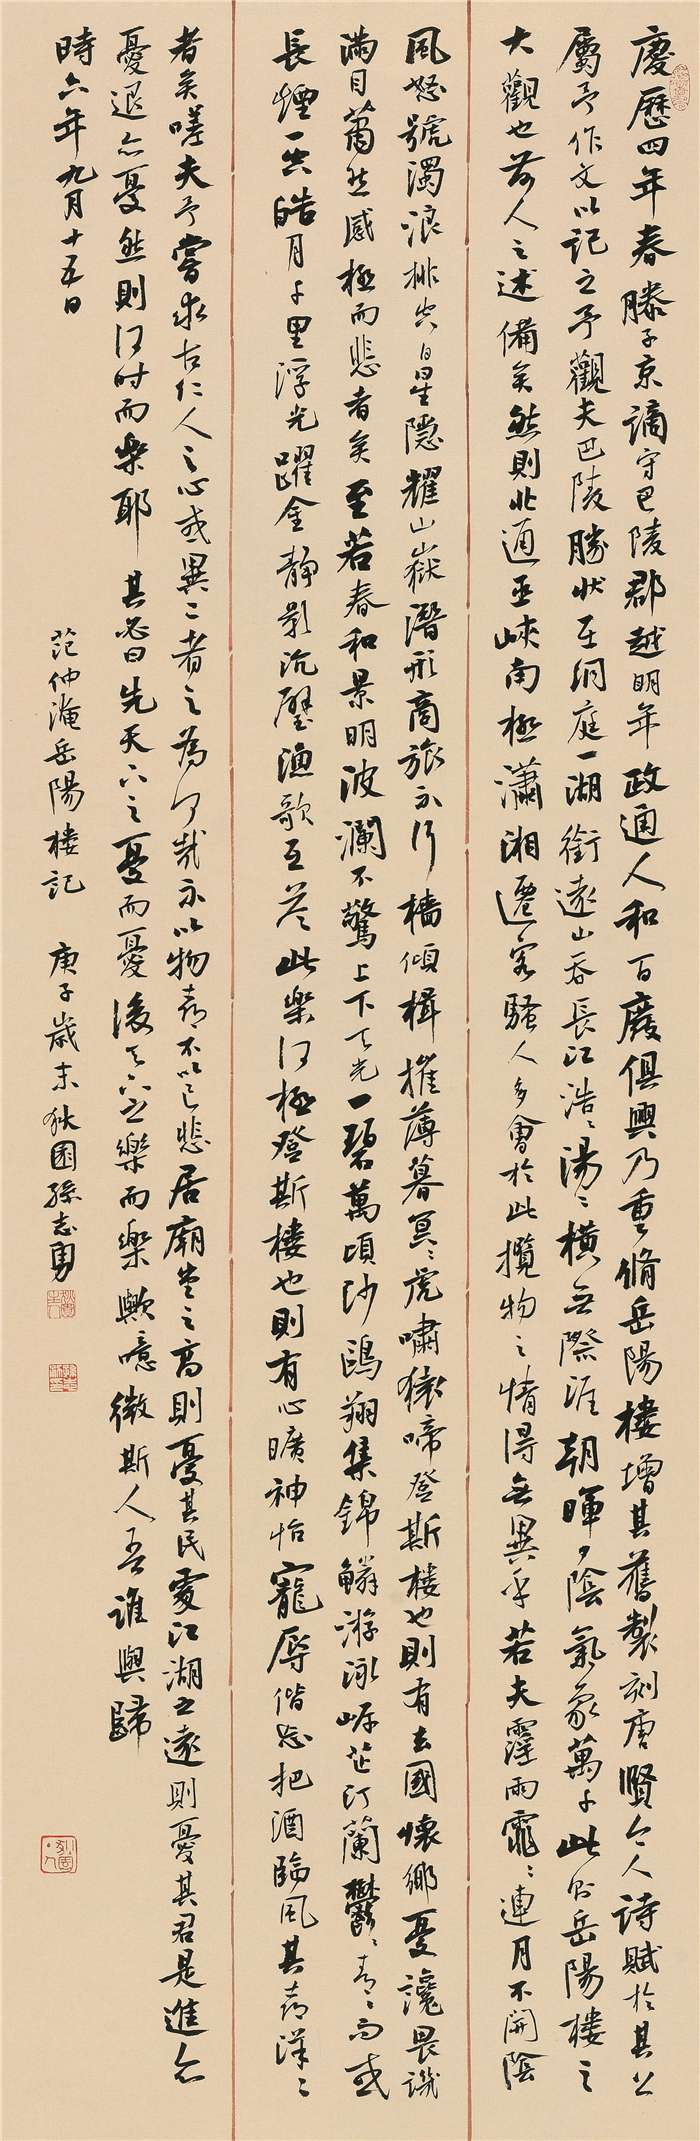 慶歷四年春滕子京謫守巴陵郡越明年政通人和百廢俱興乃重脩岳陽樓增其舊製刻唐賢今人詩賦於其上
屬予作文以記之予觀夫巴陵勝狀在洞庭一湖銜遠山吞長江浩〻湯〻橫無際涯朝暉夕陰氣象萬千此則岳陽樓之
大觀也前人之述備矣然則北通巫峽南極瀟湘遷客騷人多會於此攬物之情得無異乎若夫霪雨霏〻連月不開陰
風怒號濁浪排空日星隱耀山嶽潛形商旅不行檣傾楫摧薄暮冥〻虎嘯猿啼登斯樓也則有去國懷鄉憂讒畏譏
滿目蕭然感極而悲者矣至若春和景明波瀾不驚上下天光一碧萬頃沙鷗翔集錦鱗游泳岸芷汀蘭鬱〻青〻而或
長煙一空皓月千里浮光躍金靜影沉璧漁歌互答此樂何極登斯樓也則有心曠神怡寵辱偕忘把酒臨風其喜洋〻
者矣嗟夫予嘗求古仁人之心或異二者之為何哉不以物喜不以己悲居廟堂之高則憂其民處江湖之遠則憂其君是進亦
憂退亦憂然則何时而樂耶其必曰先天下之憂而憂後天下之樂而樂歟噫微斯人吾誰與歸
時六年九月十五日
范仲淹岳陽樓記 庚子歲末狄園孫志勇